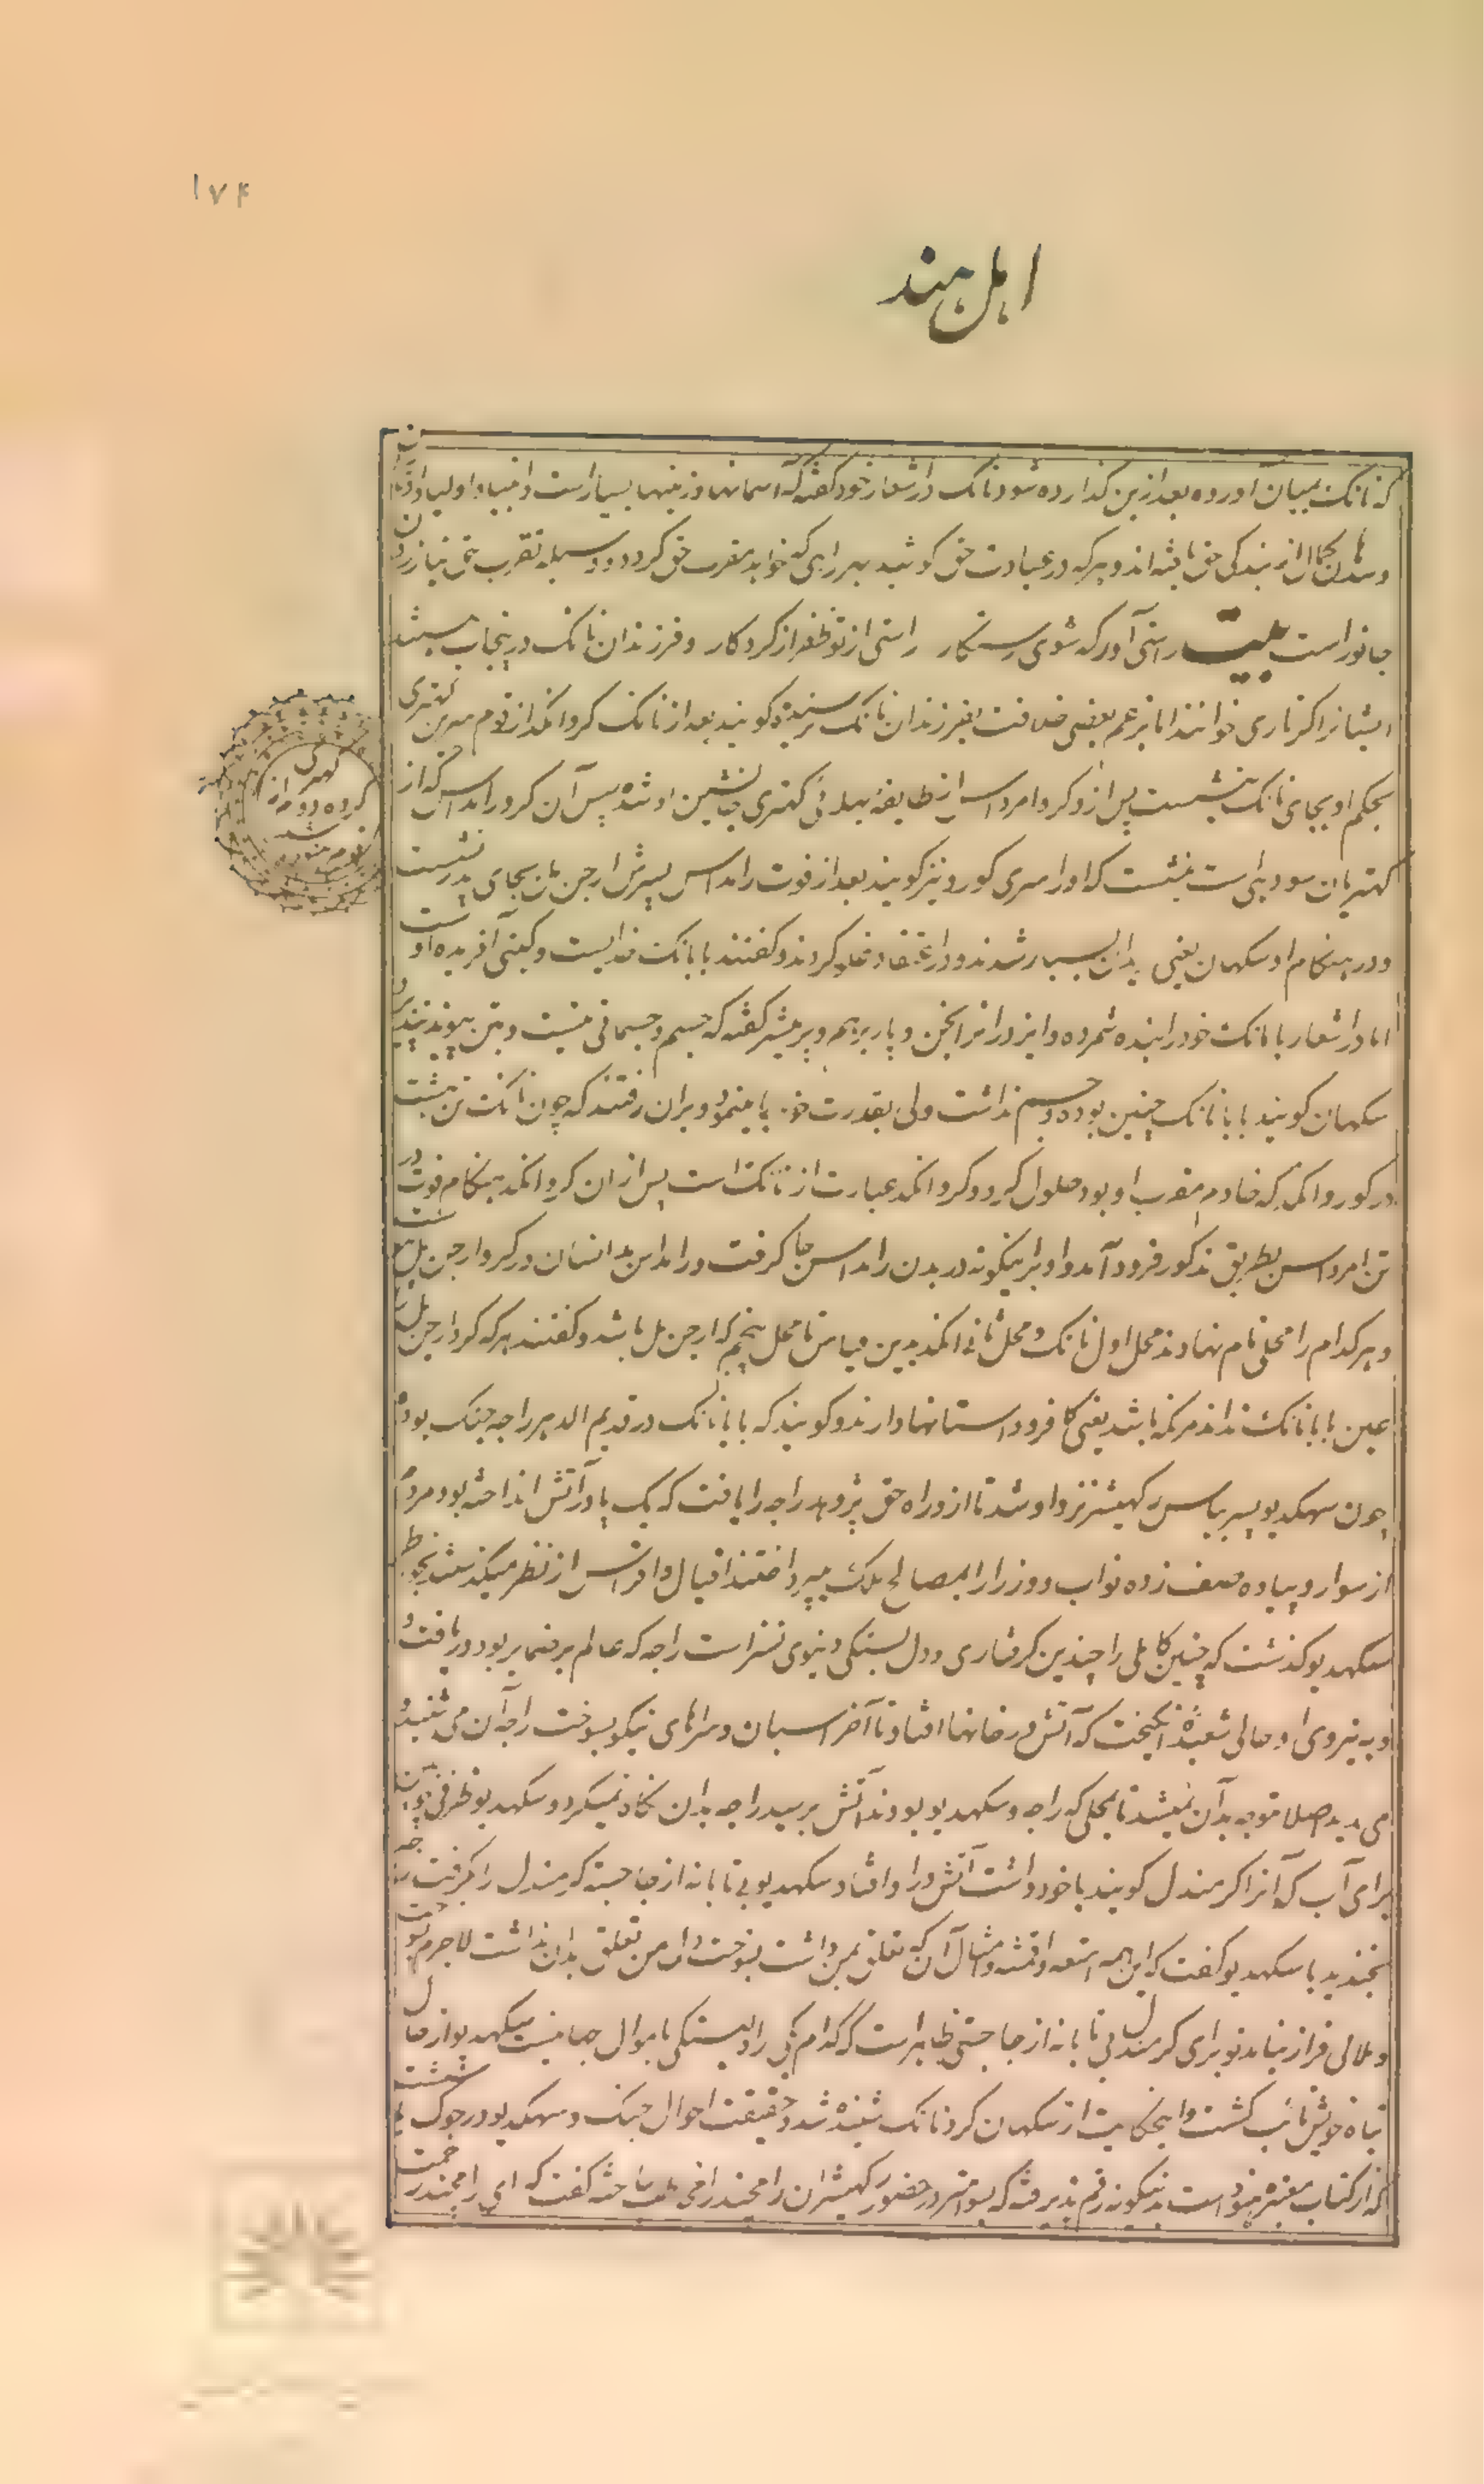 ۱۷۴
اهل هند
که نانک بمیان آورده بعد ازین گذارده شود نانک در اشعار خود گفته که آسمانها و زمینها بسیار است و انبیا و اولیا و اوتاران
و سدان کمال از بندگی حق یافته‌اند و هر که در عبادت حق کوشد بهر راهی که خواهد مقرب حق گردد و وسیله تقرب حق نیازردن
جانور است بیت راستی آور که شوی رستگار راستی از تو ظفر از کردکار و فرزندان نانک در پنجاب هستند
ایشانرا کرتاری خوانند اما بزعم بعضی خلافت بفرزندان نانک نرسیده گویند بعد از نانک کرو انکد از قوم سرین کهتری
بحکم او بجای نانک بنشست پس ازو کرو امرداس از طایفه بهلائی کهتری جانشین او شد پس آن کرو رامداس که از
کهتریان سودهی است بنشست که او را سری کورو نیز گویند بعد از فوت رامداس پسرش ارجن مل بجای پدر نشست
و در هنگام او سکهان یعنی مریدان بسیار شدند و در اعتقاد غلو کردند و گفتند بابا نانک خدایست و گیتی آفریده اوست
اما در اشعار بابا نانک خود را بنده شمرده و ایزد را نرانجن و پاربرهم و پرمیشر گفته که جسم و جسمانی نیست و بتن پیوند نپذیرد
سکهان گویند بابا نانک چنین بوده و جسم نداشت ولی بقدرت خود بما مینمود و بران رفتند که چون نانک تن بهشت
در کورو انکد که خادم مقرب او بود حلول کرد و کرو انکد عبارت از نانک است پس ازان کرو انکد هنگام فوت در
تن امرداس بطریق مذکور فرود آمد و او برینگونه در بدن رامداس جا گرفت و رامداس بدانسان در کرو ارجن مل پیوست
و هر کدام را محلی نام نهادند محل اول نانک و محل ثانی انکد بدین قیاس تا محل پنجم که ارجن مل باشد و گفتند هر که کرو ارجن مل را
عین بابا نانک نداند مرتد باشد یعنی کافر و داستانها دارند و گویند که بابا نانک در قدیم الدهر راجه جنک بود
چون سهکدیو پسر بیاس رکهیشر نزد او شد تا ازو راه حق پژوهد راجه را یافت که یک پا در آتش انداخته بود مردم
از سوار و پیاده صف زده نواب و وزرا را بمصالح ملک میپرداختند افیال و افراس از نظر میگذشت بخاطر
سکهدیو گذشت که چنین کاملی را چندین گرفتاری و دل بستگی دنیوی نه سزاست راجه که عالم بر ضمایر بود دریافت
و به نیروی او حالی شعبده انگیخت که آتش در خانها افتاد تا آخر اسپان و سراهای نیکو بسوخت راجه آن می شنید و
می دید اصلا متوجه بدان نمیشد تا بمحلی که راجه و سکهدیو بودند آتش برسید راجه بدان نگاه نمیکرد و سکهدیو ظرفی چوبینه
برای آب که آنرا کرمندل گویند با خود داشت آتش در او افتاد سکهدیو بی تابانه از جا جسته کرمندل را بگرفت راجه
بخندید با سکهدیو گفت که این همه امتعه و اقمشه و امثال آن که تعلق بمن داشت بسوخت دل من تعلق بدان نداشت لاجرم سوخت
و ملالی فراز نیامد تو برای کرمندل بی تابانه از جا جستی ظاهر است که کدام یکی را دلبستگی باموال جهانیست سکهدیو از حال
تباه خویش تائب گشت و این حکایت از سکهان کرو نانک شنیده شد و حقیقت احوال جنک و سهکدیو در جوک بشست
که از کتاب معتبره هنود است بدینگونه رقم پذیرفته که بسوامتر در حضور رکهیشران رامچند را مخاطب ساخته گفت که ای رامچندر
کهتری
گروه دوم از
قوم هنود